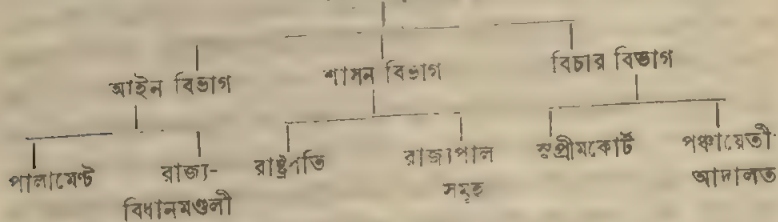 আইন বিভাগ
শাসন বিভাগ
বিচার বিভাগ
পার্লামেন্ট
রাজ্য-
বিধানমণ্ডলী
রাষ্ট্রপতি
রাজ্যপাল
সমূহ
সুপ্রীমকোর্ট
পঞ্চায়েতী
আদালত